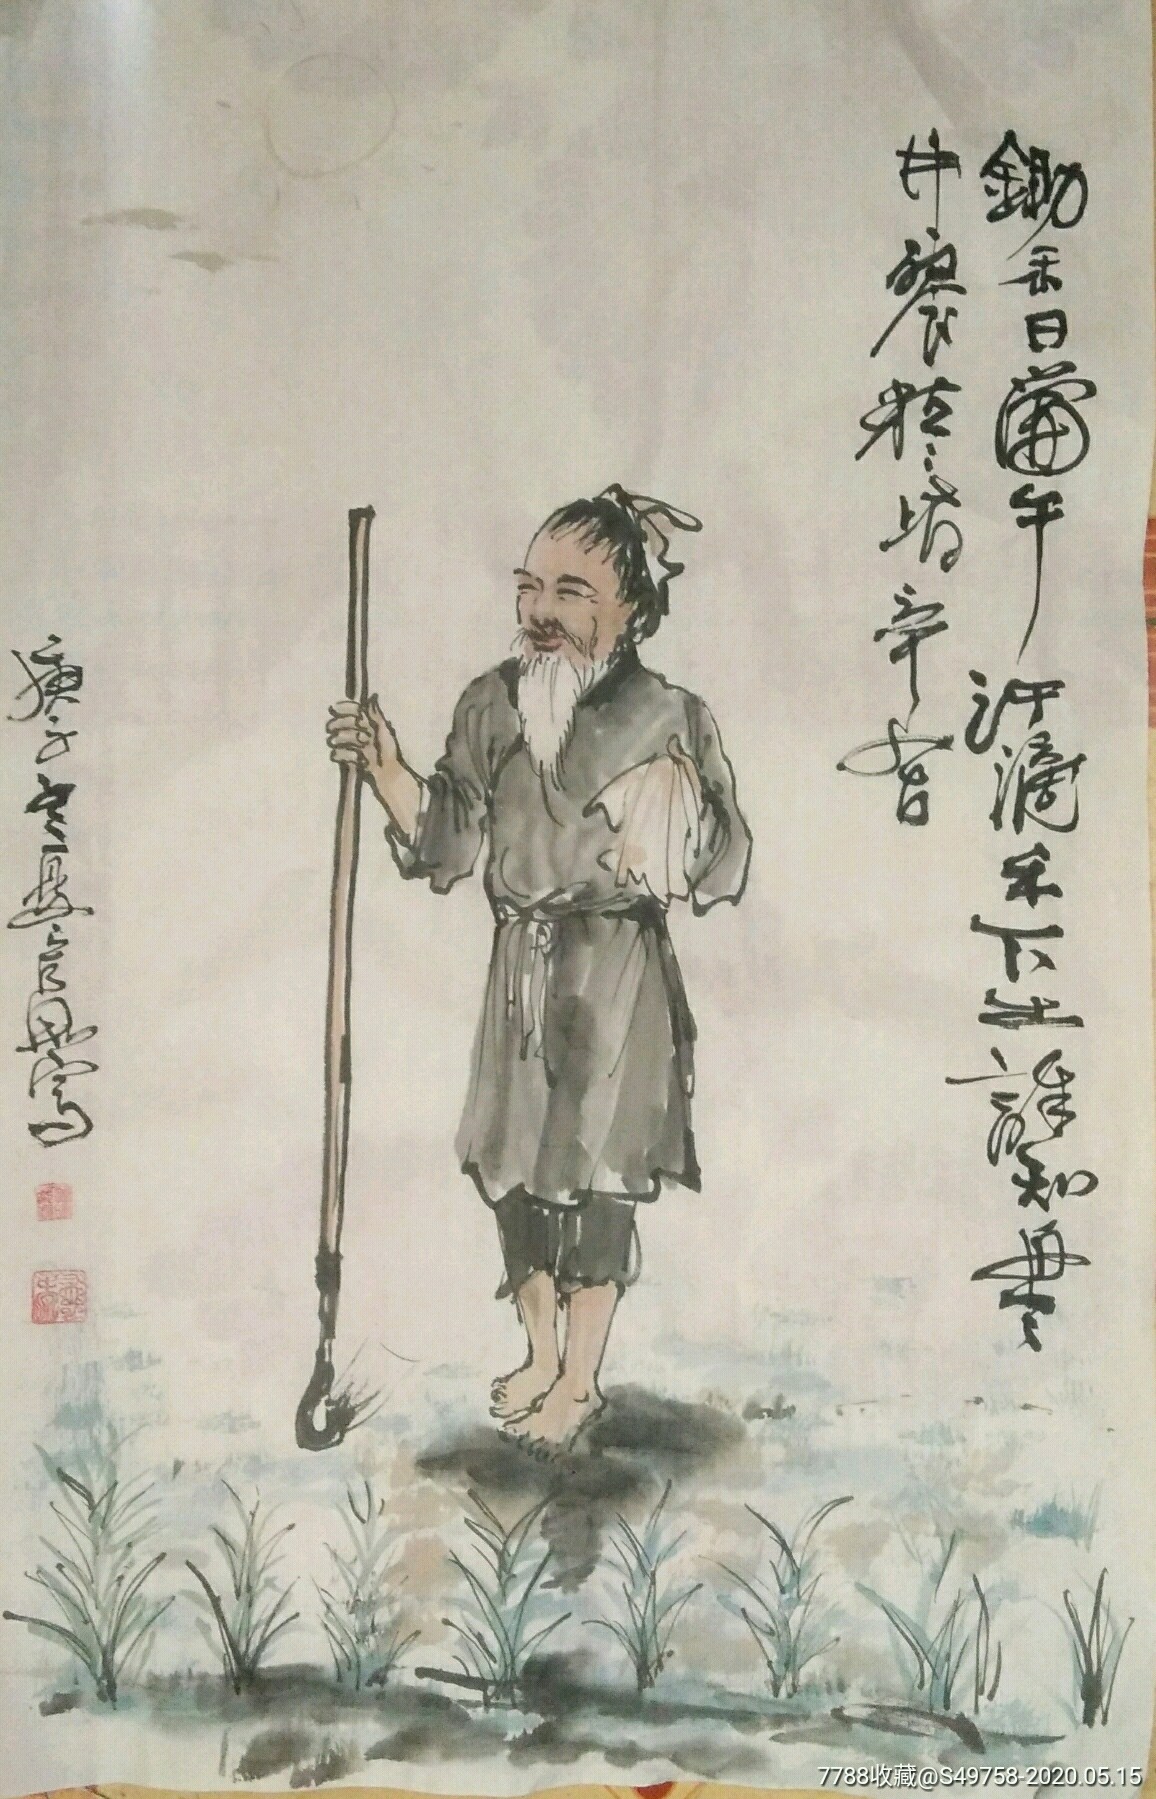 鋤禾日當午汗滴禾下土誰知盤
中餐粒〻皆辛苦
庚子寫
7788收藏@S49758-2020.05.15